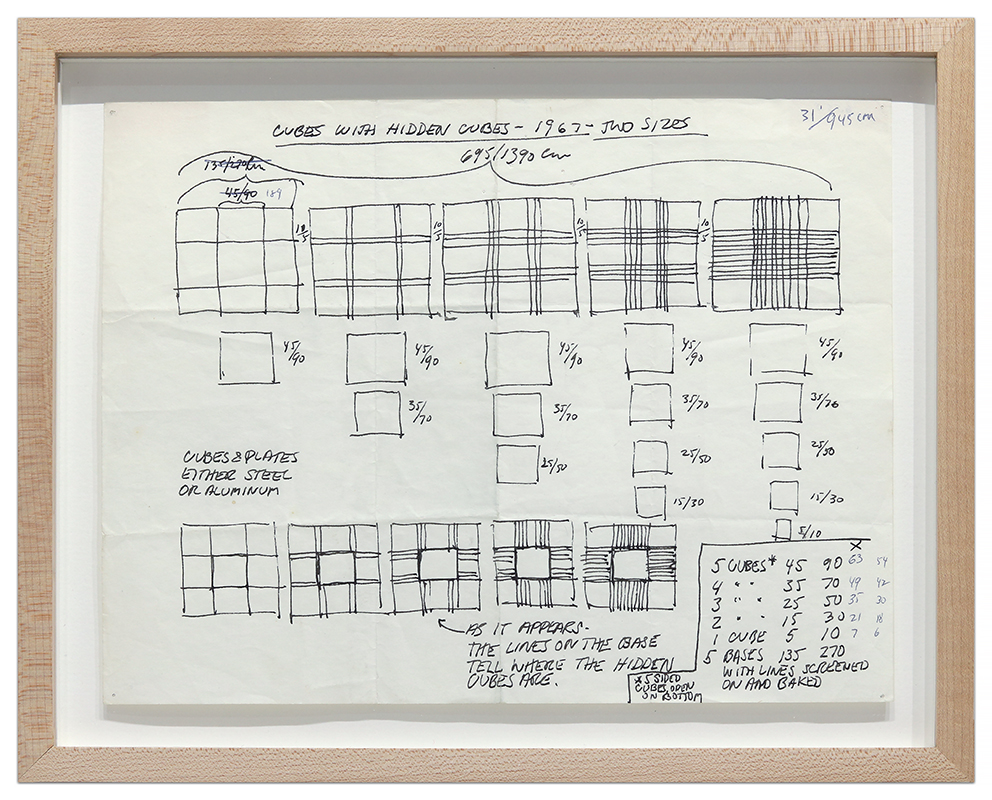 CUBES WITH HIDDEN CUBES - 1967 - TWO SIZES
31'/945 cm
695/1390 cm
135/270 cm
45/90 189
10/5 10/5 10/5 10/5
45/90 45/90 45/90 45/90 45/90
35/70 35/70 35/70 35/70
25/50 25/50 25/50
15/30 15/30
5/10
CUBES & PLATES
EITHER STEEL
OR ALUMINUM
X
5 CUBES* 45 90 63 54
4 " " 35 70 49 42
3 " " 25 50 35 30
2 " " 15 30 21 18
1 CUBE 5 10 7 6
5 BASES 135 270
WITH LINES SCREENED
ON AND BAKED
AS IT APPEARS-
THE LINES ON THE BASE
TELL WHERE THE HIDDEN
CUBES ARE.
* 5 SIDED
CUBES, OPEN
ON BOTTOM